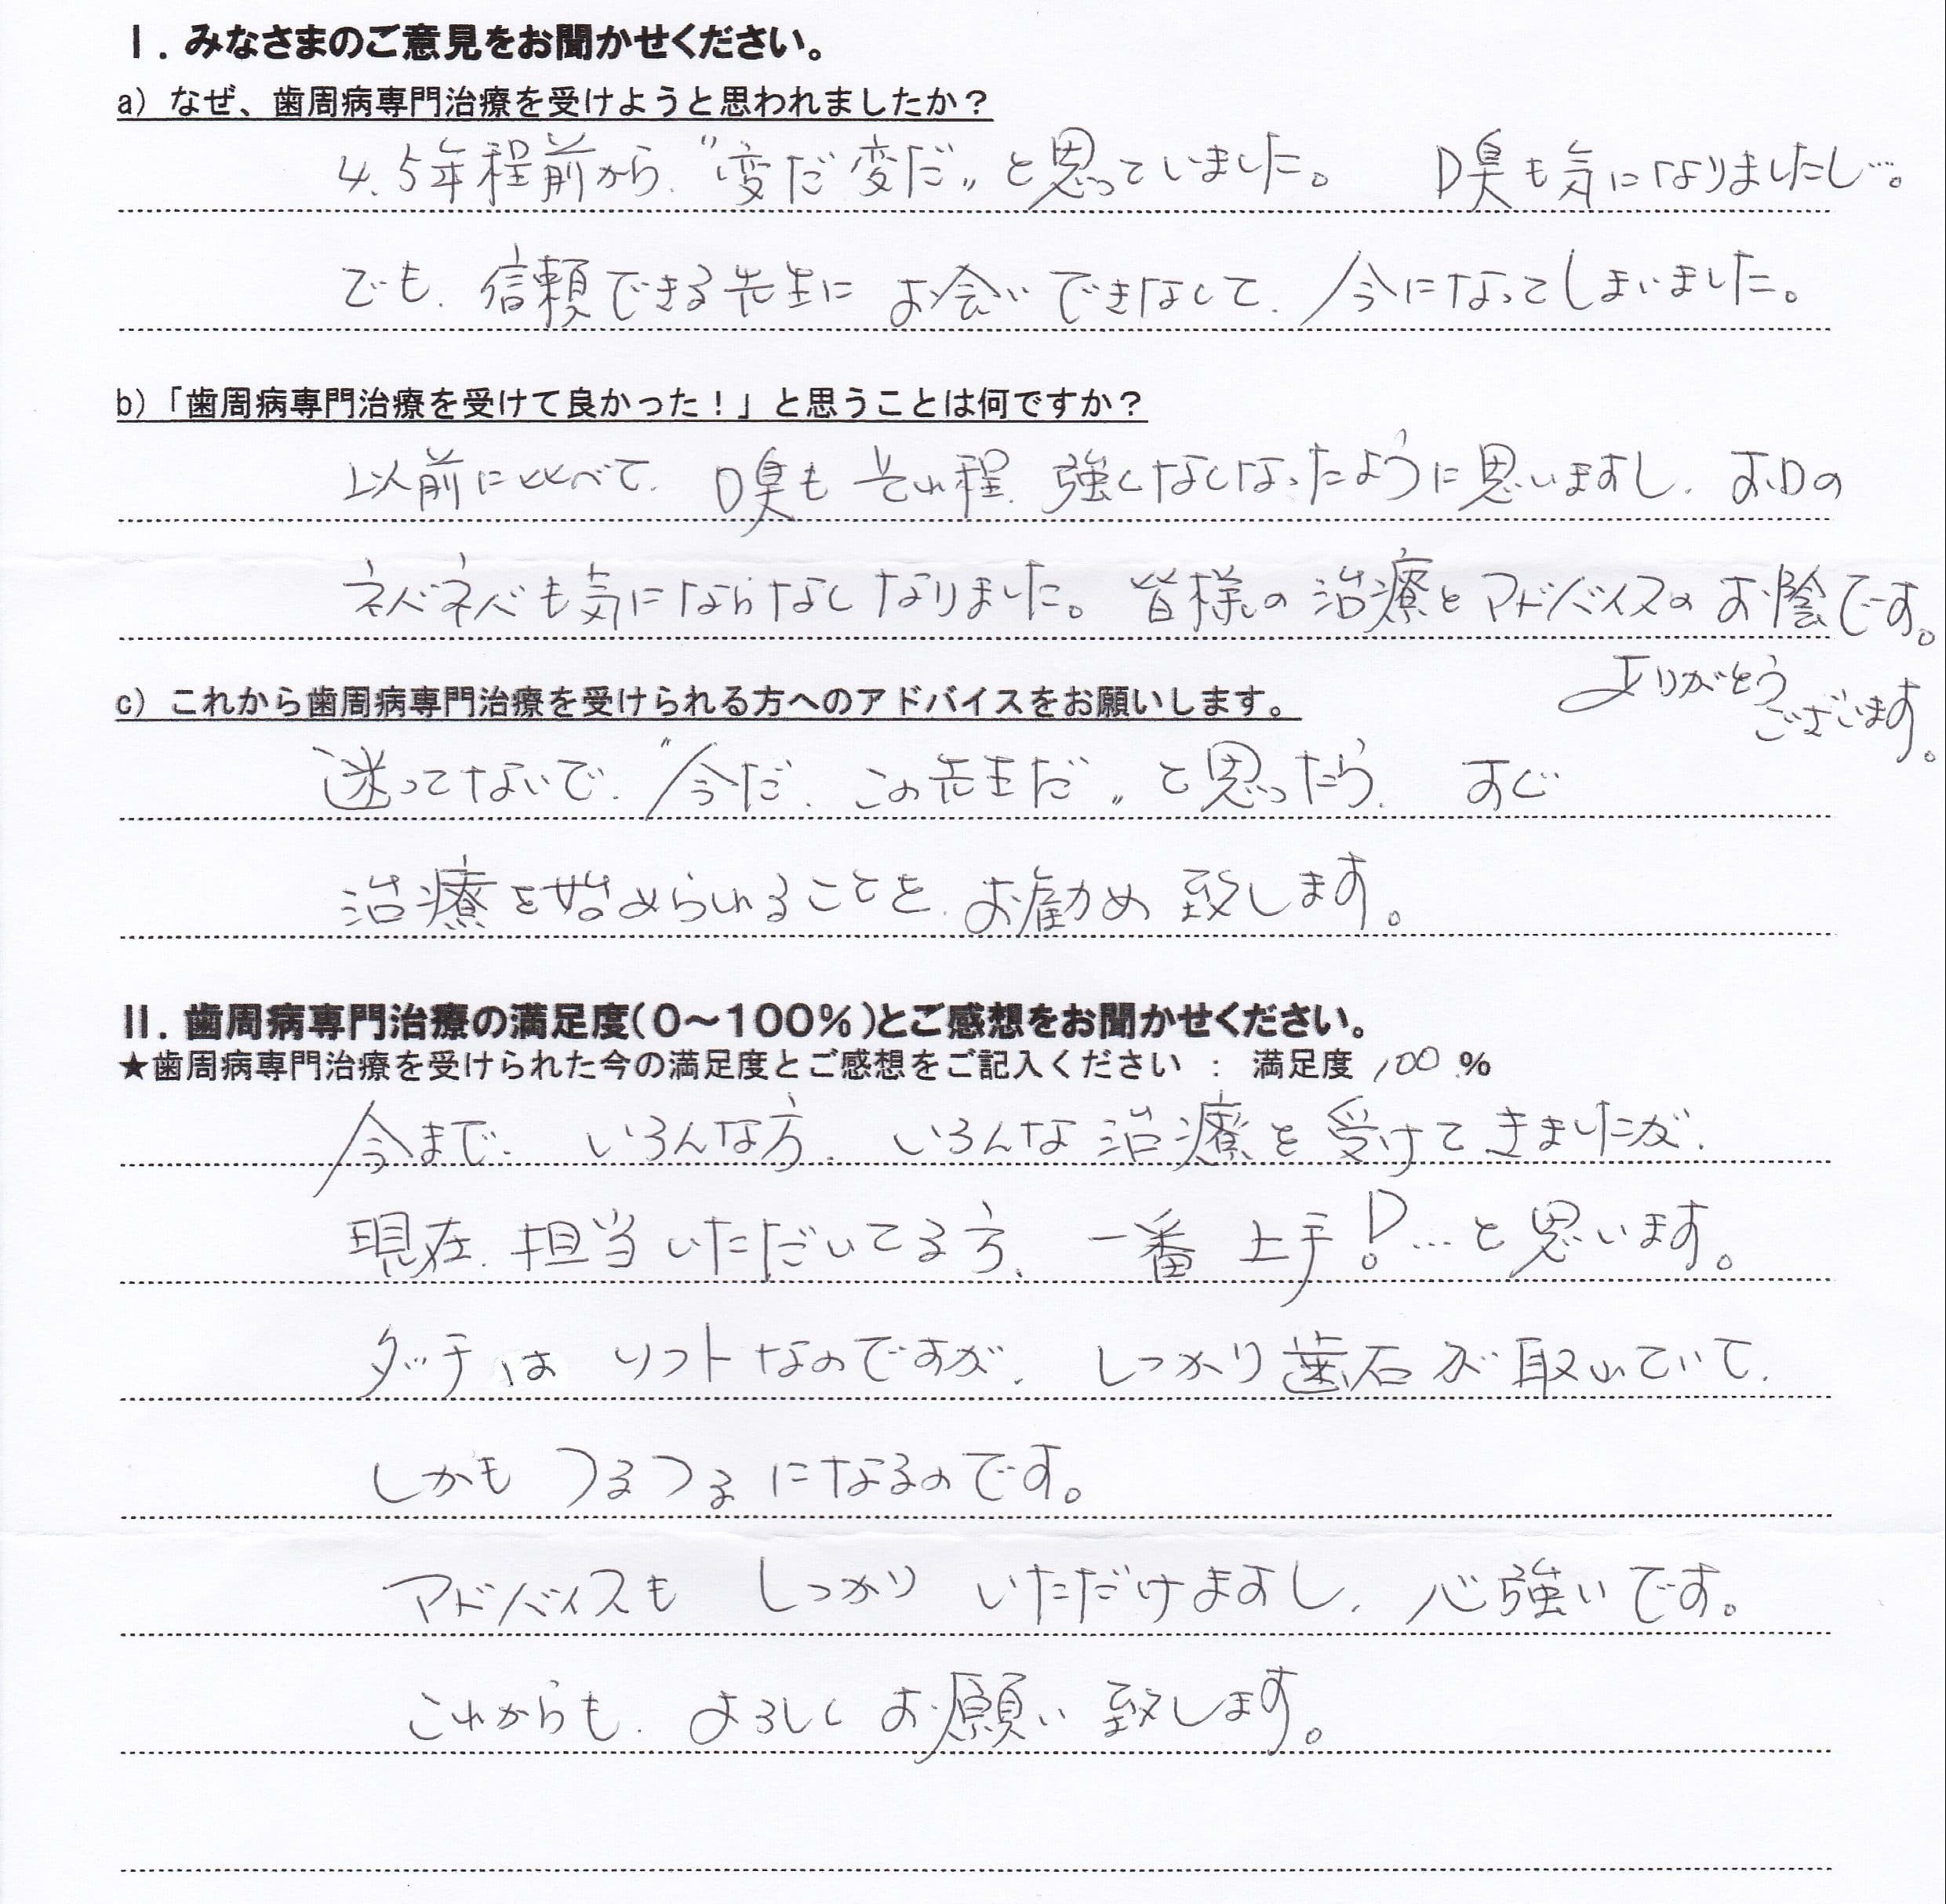 Ⅰ．みなさまのご意見をお聞かせください。
a）なぜ、歯周病専門治療を受けようと思われましたか？
4、5年程前から、"変だ変だ"と思っていました。 口臭も気になりましたし…。
でも、信頼できる先生に お会いできなくて、今になってしまいました。
b）「歯周病専門治療を受けて良かった！」と思うことは何ですか？
以前に比べて、口臭も それ程、強くなくなったように思いますし、お口の
ネバネバも気にならなくなりました。皆様の治療とアドバイスのお陰です。
ありがとう
ございます。
c）これから歯周病専門治療を受けられる方へのアドバイスをお願いします。
迷ってないで、"今だ、この先生だ"と思ったら、すぐ
治療を始められることを、お勧め致します。
Ⅱ．歯周病専門治療の満足度（0～100％）とご感想をお聞かせください。
★歯周病専門治療を受けられた今の満足度とご感想をご記入ください ： 満足度 100 ％
今まで、いろんな方、いろんな治療を受けてきましたが、
現在、担当いただいてる方、一番 上手！…と思います。
タッチは ソフトなのですが、しっかり歯石が取れていて、
しかも つるつるになるのです。
アドバイスも しっかり いただけますし、心強いです。
これからも、よろしくお願い致します。